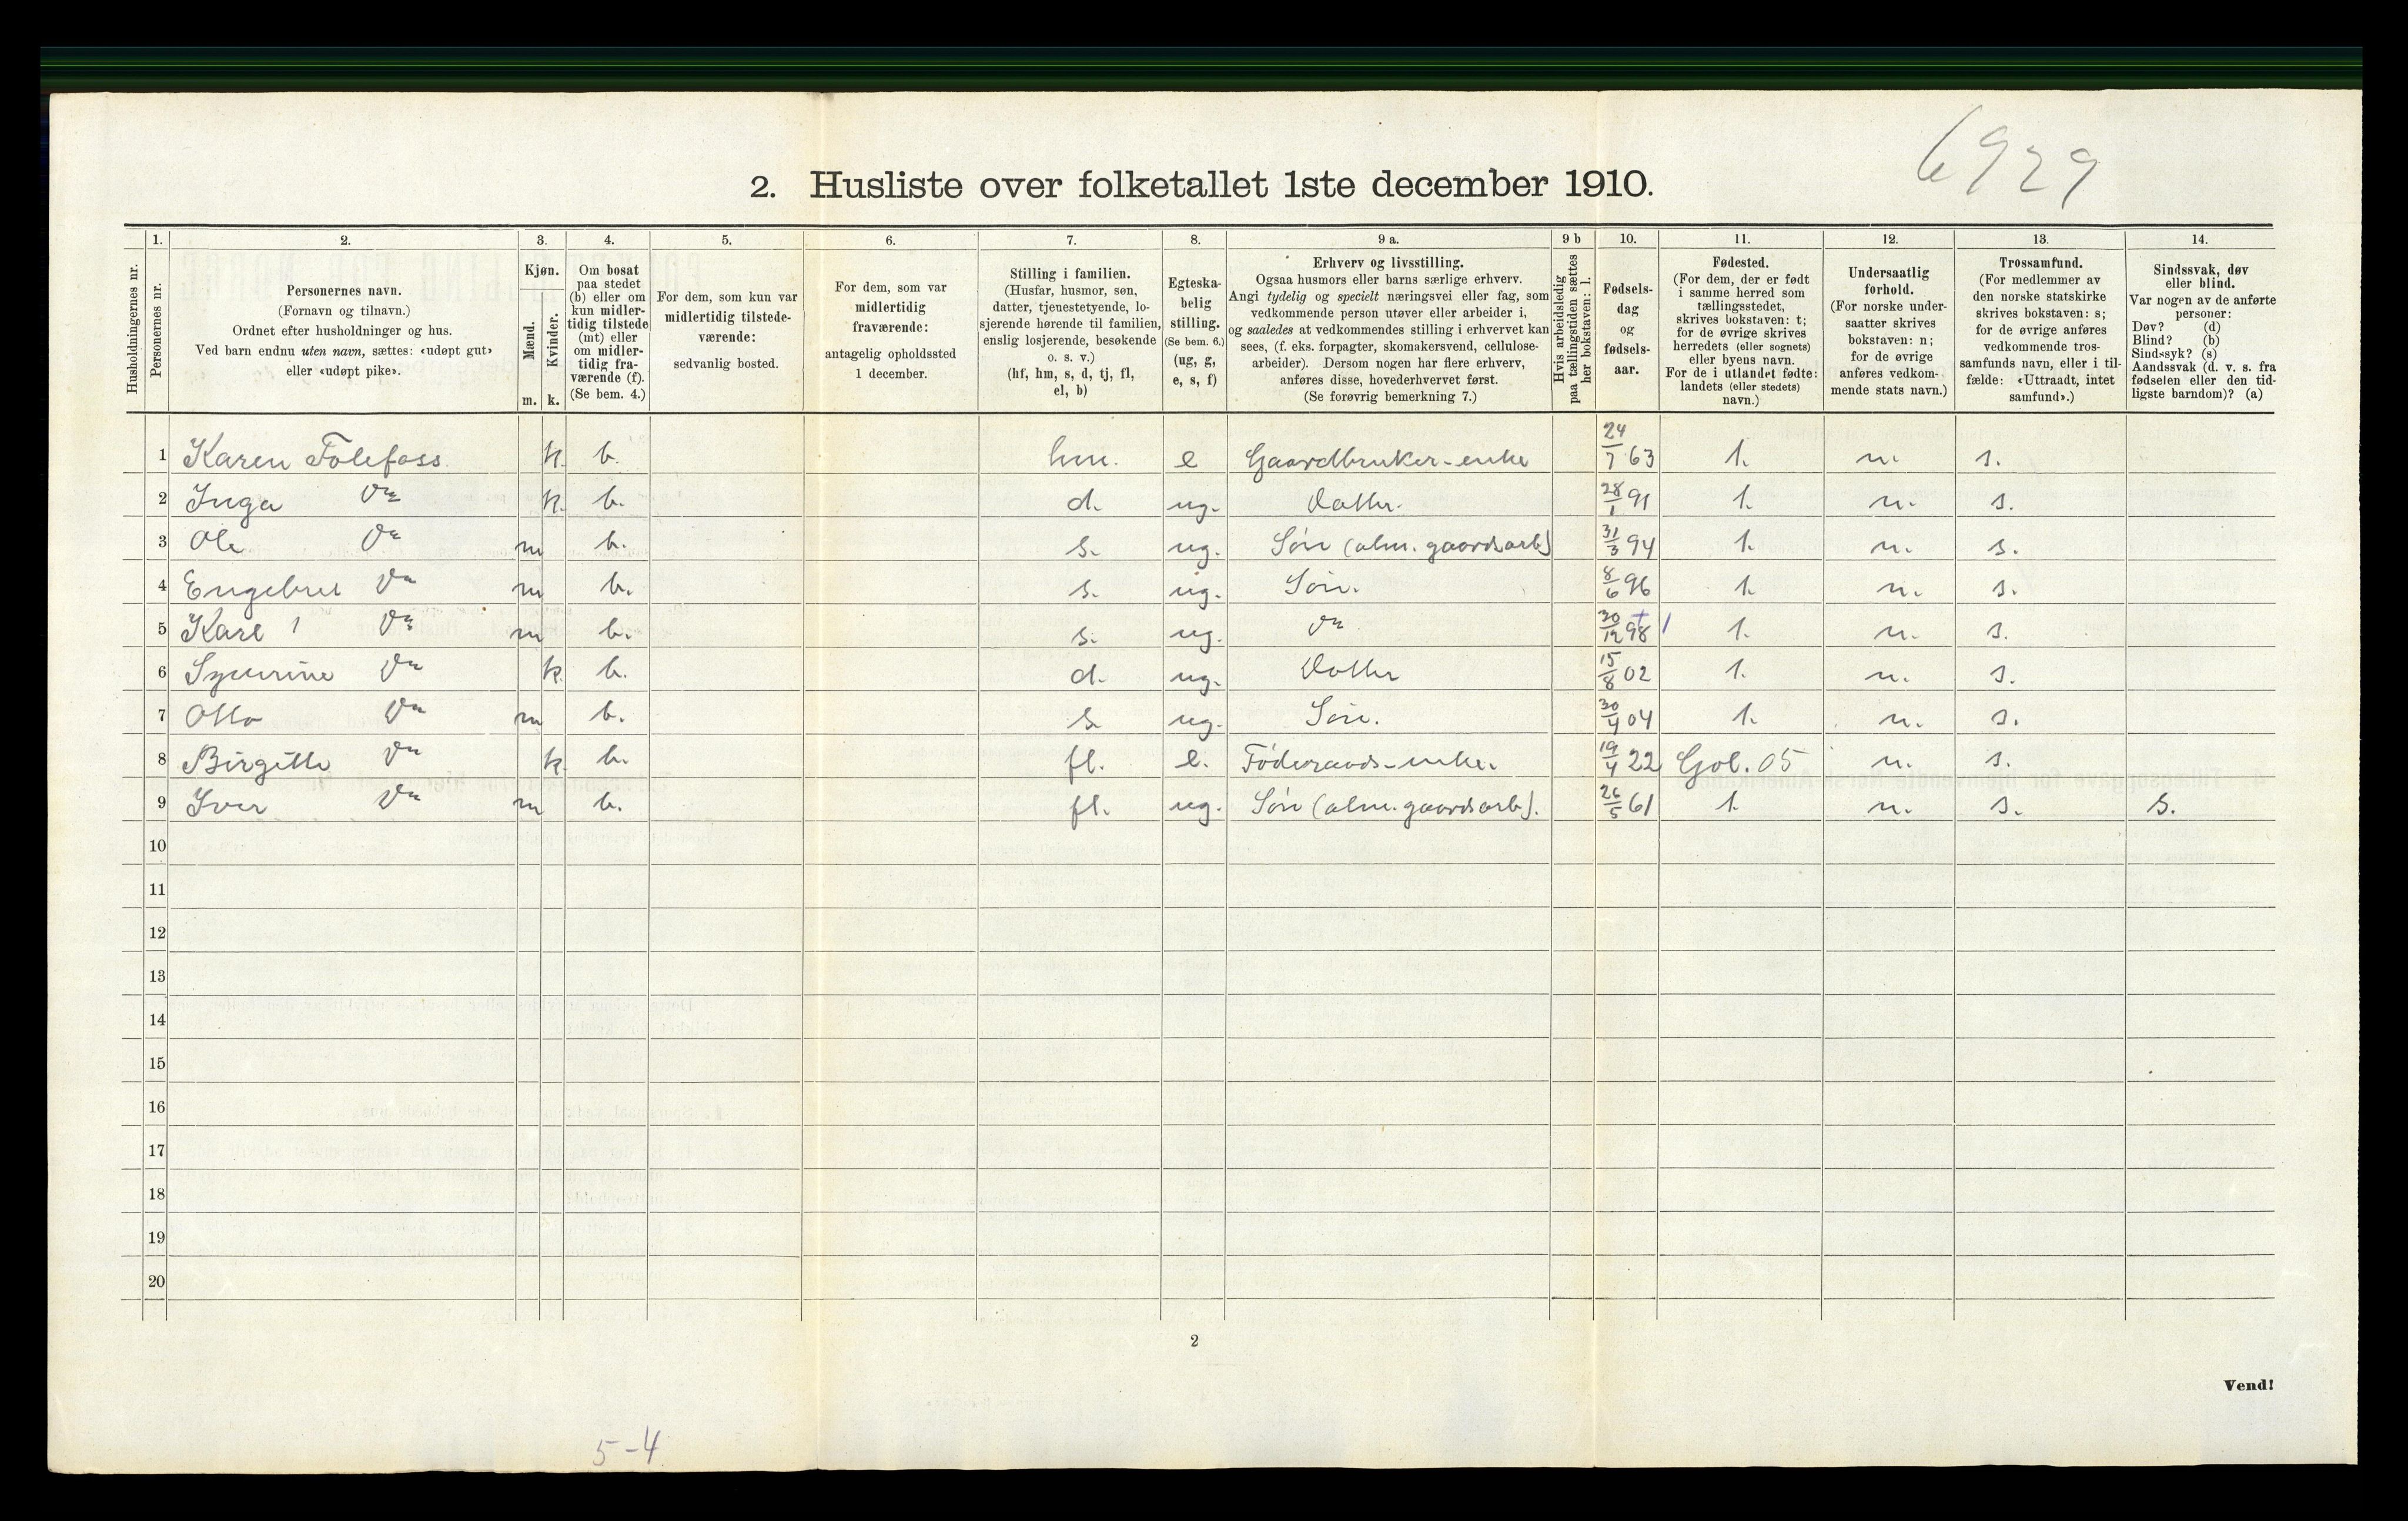 6929
2. Husliste over folketallet 1ste december 1910.
Husholdningernes nr.
1.
Personernes nr.
2.
Personernes navn.
(Fornavn og tilnavn.)
Ordnet efter husholdninger og hus.
Ved barn endnu uten navn, sættes: «udøpt gut»
eller «udøpt pike».
3.
Kjøn.
Mænd.
Kvinder.
m. k.
4.
Om bosat
paa stedet
(b) eller om
kun midler-
tidig tilstede
(mt) eller
om midler-
tidig fra-
værende (f).
(Se bem. 4.)
5.
For dem, som kun var
midlertidig tilstede-
værende:
sedvanlig bosted.
6.
For dem, som var
midlertidig
fraværende:
antagelig opholdssted
1 december.
7.
Stilling i familien.
(Husfar, husmor, søn,
datter, tjenestetyende, lo-
sjerende hørende til familien,
enslig losjerende, besøkende
o. s. v.)
(hf, hm, s, d, tj, fl,
el, b)
8.
Egteska-
belig
stilling.
(Se bem. 6.)
(ug, g,
e, s, f)
9 a.
Erhverv og livsstilling.
Ogsaa husmors eller barns særlige erhverv.
Angi tydelig og specielt næringsvei eller fag, som
vedkommende person utøver eller arbeider i,
og saaledes at vedkommendes stilling i erhvervet kan
sees, (f. eks. forpagter, skomakersvend, cellulose-
arbeider). Dersom nogen har flere erhverv,
anføres disse, hovederhvervet først.
(Se forøvrig bemerkning 7.)
9 b
Hvis arbeidsledig
paa tællingstiden sættes
her bokstaven: l.
10.
Fødsels-
dag
og
fødsels-
aar.
11.
Fødested.
(For dem, der er født
i samme herred som
tællingsstedet,
skrives bokstaven: t;
for de øvrige skrives
herredets (eller sognets)
eller byens navn.
For de i utlandet fødte:
landets (eller stedets)
navn.)
12.
Undersaatlig
forhold.
(For norske under-
saatter skrives
bokstaven: n;
for de øvrige
anføres vedkom-
mende stats navn.)
13.
Trossamfund.
(For medlemmer av
den norske statskirke
skrives bokstaven: s;
for de øvrige anføres
vedkommende tros-
samfunds navn, eller i til-
fælde: «Uttraadt, intet
samfund».)
14.
Sindssvak, døv
eller blind.
Var nogen av de anførte
personer:
Døv? (d)
Blind? (b)
Sindssyk? (s)
Aandssvak (d. v. s. fra
fødselen eller den tid-
ligste barndom)? (a)
1 Karen Folefoss k. b. hm. e Gaardbruker-enke 24/7 63 t. n. s.
2 Inga Do k. b. d. ug. Datter. 28/1 91 t. n. s.
3 Ole Do m b. s. ug. Søn (alm. gaardsarb) 31/3 94 t. n. s.
4 Engebret Do m b. s. ug. Søn. 8/6 96 t. n. s.
5 Karl Do m b. s. ug. Do 30/12 98 t. n. s.
6 Do k. b. d. ug. Datter 15/8 02 t. n. s.
7 Otto Do m b. s. ug. Søn. 30/4 04 t. n. s.
8 Birgitte Do k. b. fl. e. Føderaads-enke. 19/4 22 Gol. 05 n. s.
9 Iver Do m b. fl. ug. Søn (alm. gaardsarb). 26/5 61 t. n. s. s.
10
11
12
13
14
15
16
17
18
19
20
2
Vend!
5-4